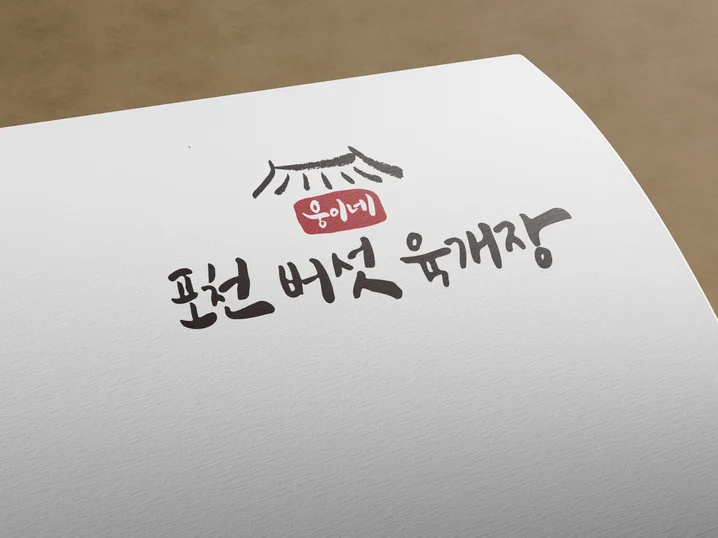 웅이네
포천 버섯 육개장